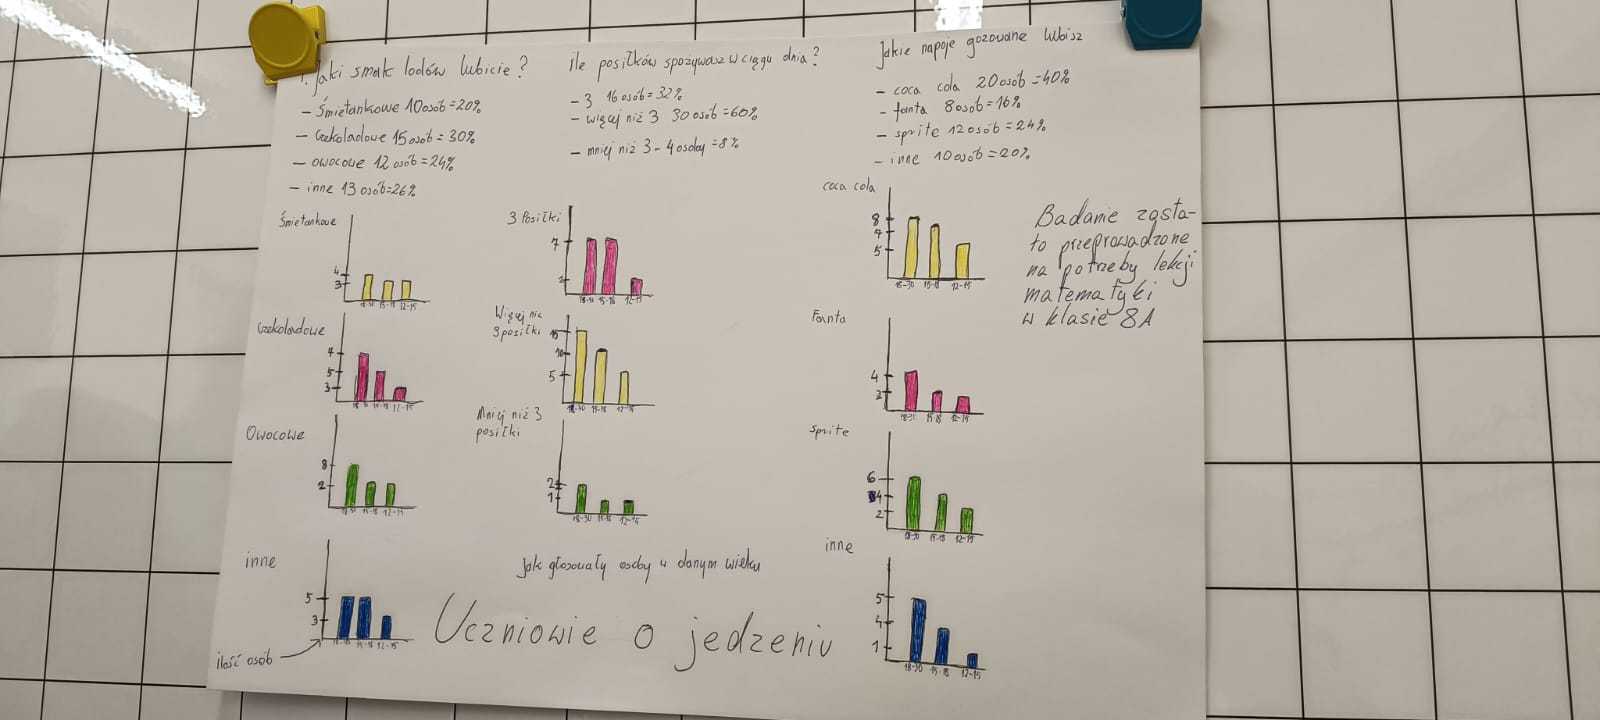 1. Jaki smak lodów lubicie?
- Śmietankowe 10 osób = 20%
- Czekoladowe 15 osób = 30%
- owocowe 12 osób = 24%
- inne 13 osób = 26%
Śmietankowe
4
3
18-30 15-18 12-15
Czekoladowe
7
5
3
18-30 15-18 12-15
Owocowe
8
2
18-30 15-18 12-15
inne
5
3
15-18 12-15
ilość osób
ile posiłków spożywasz w ciągu dnia?
- 3 16 osób = 32%
- więcej niż 3 30 osób = 60%
- mniej niż 3 - 4 osoby = 8%
3 Posiłki
7
18-30 15-18 12-15
Więcej niż
3 posiłki
15
10
5
18-30 15-18 12-15
Mniej niż 3
posiłki
2
1
18-30 15-18 12-15
Jak głosowały osoby w danym wieku
Uczniowie o jedzeniu
Jakie napoje gazowane lubisz
- coca cola 20 osób = 40%
- fanta 8 osób = 16%
- sprite 12 osób = 24%
- inne 10 osób = 20%
coca cola
8
7
5
18-30 15-18 12-15
Fanta
4
15-18 12-15
Sprite
6
4
2
18-30 15-18 12-15
inne
5
4
1
18-30 15-18 12-15
Badanie zosta-
ło przeprowadzone
na potrzeby lekcji
matematyki
w klasie 8A